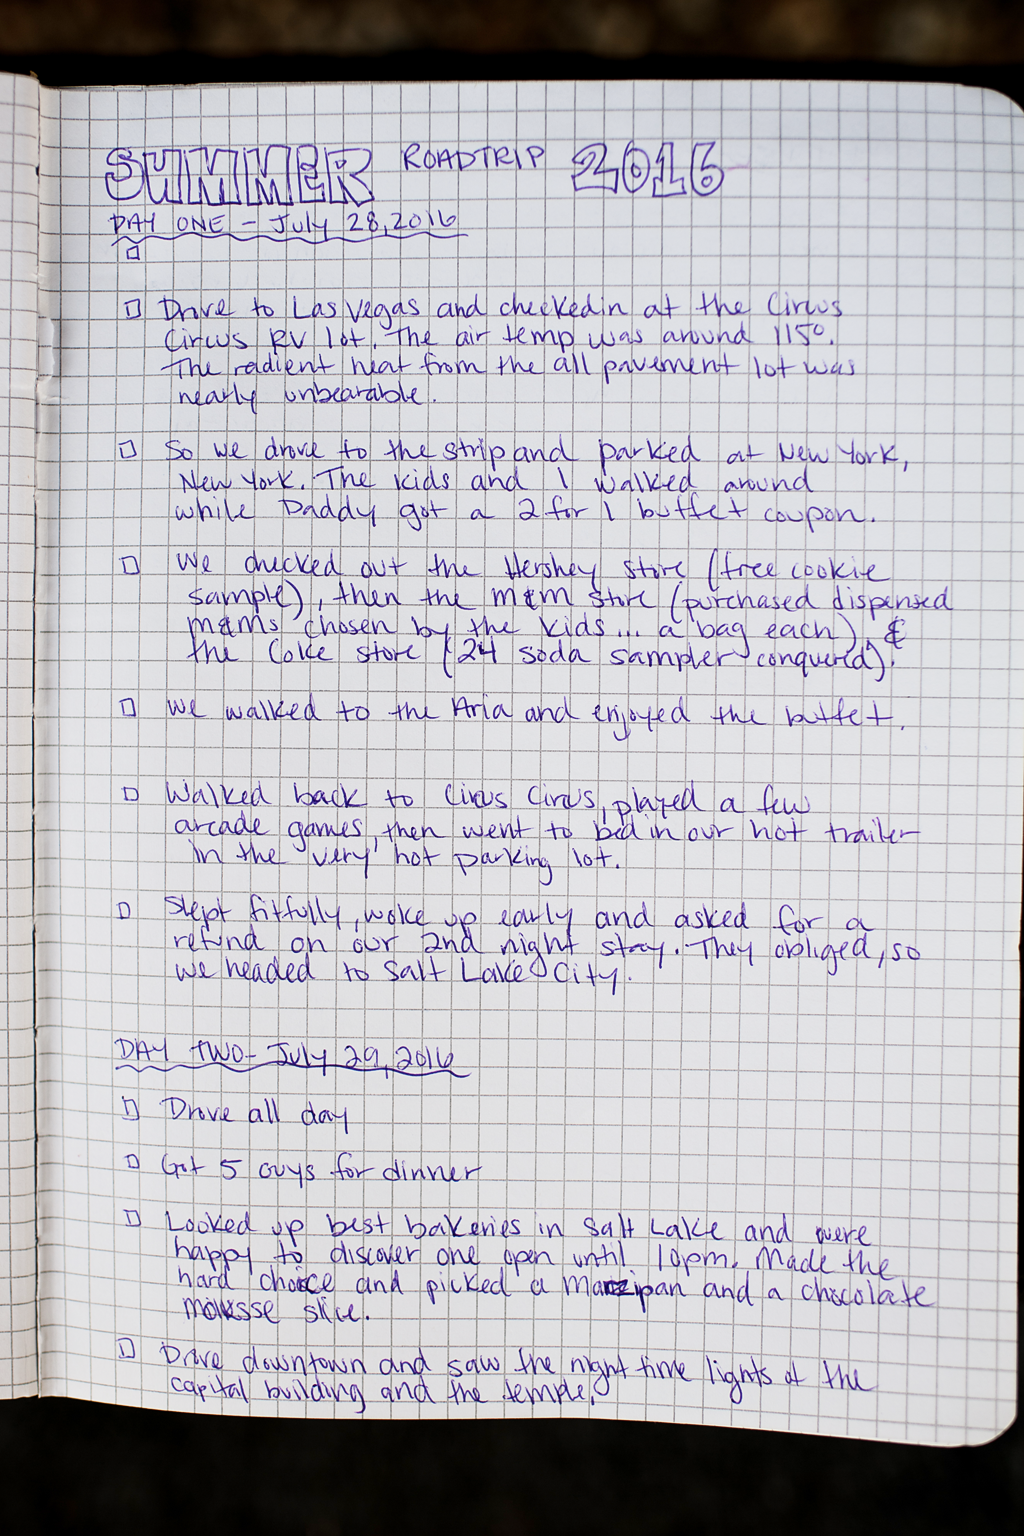 SUMMER ROADTRIP 2016
DAY ONE - July 28, 2016
Drive to Las Vegas and checked in at the Circus
Circus RV lot. The air temp was around 115°.
The radient heat from the all pavement lot was
nearly unbearable.
So we drove to the strip and parked at New York,
New York. The kids and I walked around
while Daddy got a 2 for 1 buffet coupon.
We checked out the Hershey store (free cookie
sample), then the m&m store (purchased dispensed
m&ms chosen by the kids... a bag each), &
the Coke store (24 soda sampler conquered).
We walked to the Aria and enjoyed the buffet.
Walked back to Circus Circus, played a few
arcade games, then went to bed in our hot trailer
in the very hot parking lot.
Slept fitfully, woke up early and asked for a
refund on our 2nd night stay. They obliged, so
we headed to Salt Lake City.
DAY TWO - July 29, 2016
Drove all day
Got 5 Guys for dinner
Looked up best bakeries in Salt Lake and were
happy to discover one open until 10pm. Made the
hard choice and picked a Marzipan and a chocolate
mousse slice.
Drive downtown and saw the night time lights of the
capital building and the temple.